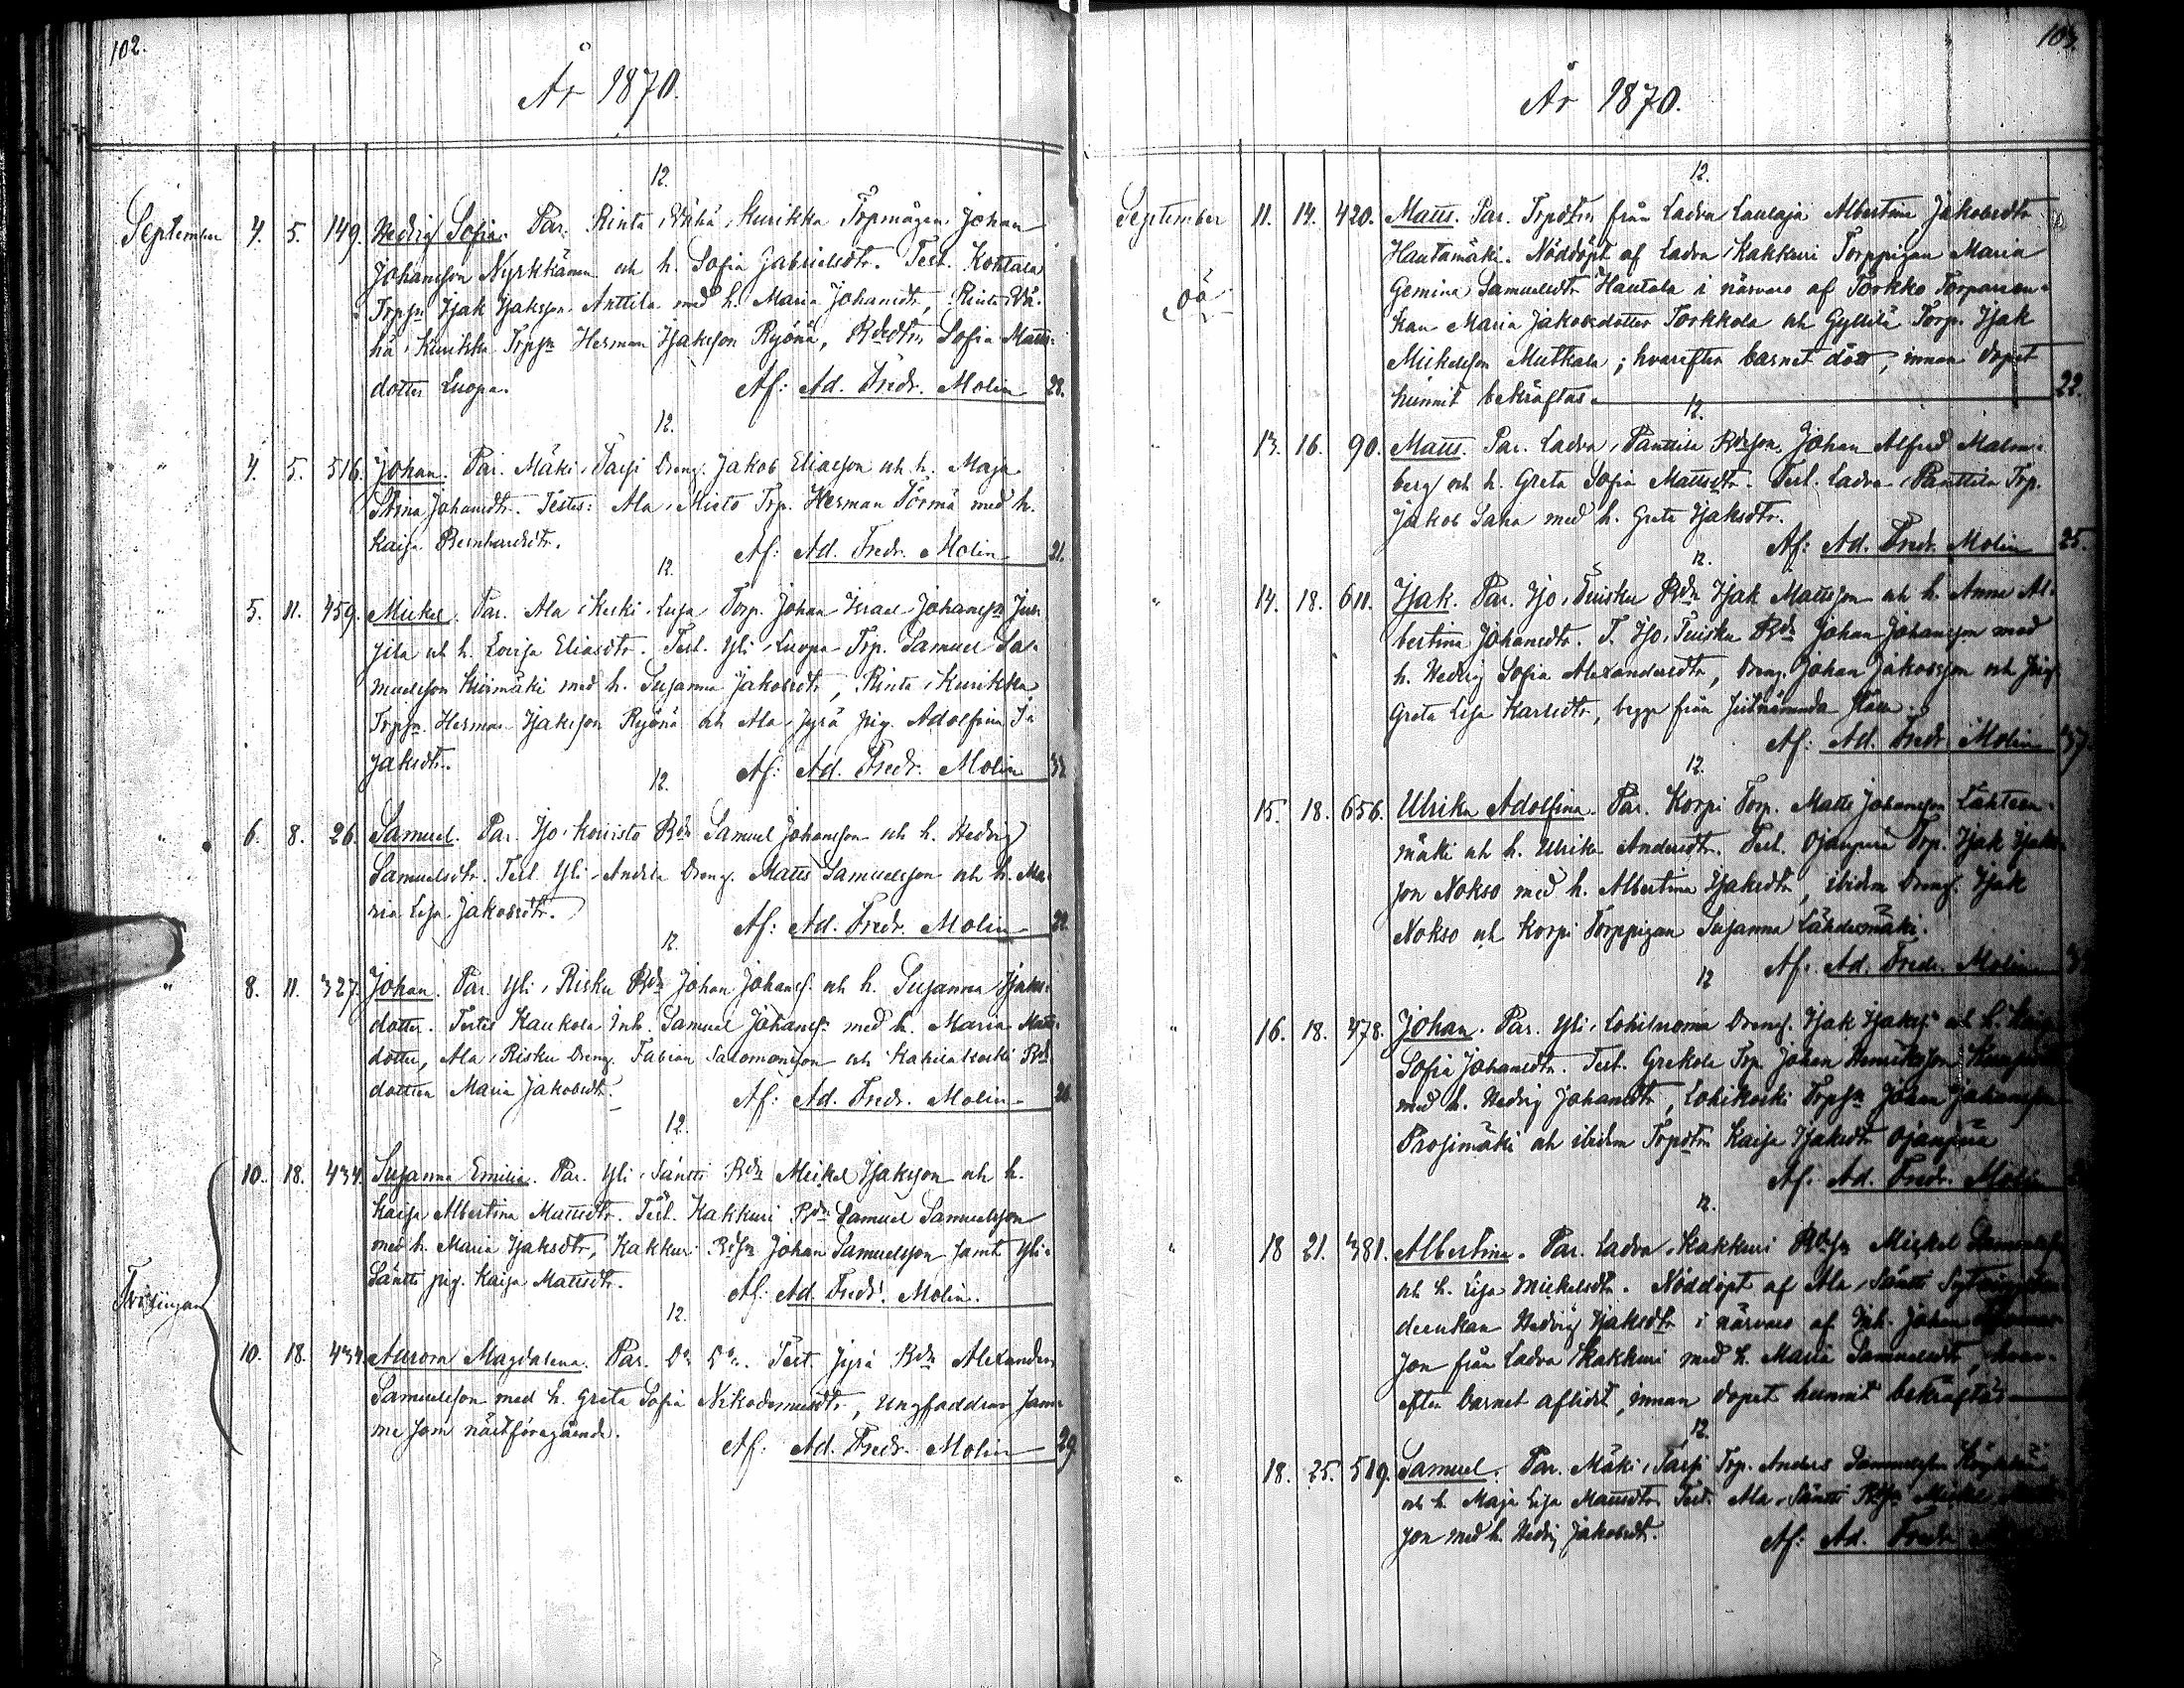 102.
År 1870.
12.
September 4. 5. 149. Hedvig Sofia. Par. Rinta, Wähä, Kurikka Torpmågen Johan
Johansson Nyrkkänen och h. Sofia Gabrielsdtr. Test. Kohtala
Trpsn Isak Isaksson Anttila med h. Maria Johansdtr, Rinta Wä-
hä, Kurikka Trpsn Herman Isaksson Ryönä, Bdedtrn Sofia Matts-
dotter Luopa. Af: Ad. Fredr. Molin 28.
12.
" 4. 5. 516. Johan. Par. Mäki, Passi Dreng. Jakob Eliasson och h. Maja
Stina Johansdtr. Testes: Ala, Mieto Trp. Herman Törmä med h.
Kaisa Bernhardsdtr. Af: Ad. Fredr. Molin 21.
12.
" 5. 11. 459. Mickel. Par. Ala, Keski, Luopa Torp. Johan Israel Johansson
och h. Lovisa Eliasdtr. Test. Yli, Luopa Trp. Samuel Sa-
muelsson Kiimäki med h. Susanna Jakobsdtr, Rinta, Kurikka
Trpsn. Herman Isaksson Ryönä och Ala, Jyrä pig. Adolfina I-
saksdtr. Af: Ad. Fredr. Molin 33.
12.
" 6. 8. 26. Samuel. Par. Iso, Koivisto Bdn Samuel Johansson och h. Hedvig
Samuelsdtr. Test. Yli, Andila Dreng. Matts Samuelsson och h. Ma-
ria Lisa Jakobsdtr. Af: Ad. Fredr. Molin 22.
12.
" 8. 11. 327. Johan. Par. Yli, Risku Bdn Johan Johanss. och h. Susanna Isaks-
dotter. Testes Kaukola Inh. Samuel Johanss. med h. Maria Matts-
dotter, Ala, Risku Dreng. Fabian Salomonsson och Kahilakoski Bde
dottren Maria Jakobsdtr. Af: Ad. Fredr. Molin
12.
10. 18. 434. Susanna Emilia. Par. Yli, Säntti Bdn Mickel Isaksson och h.
Kaisa Albertina Mattsdtr. Test. Kakkuri Bdn Samuel Samuelsson
med h. Maria Isaksdtr, Kakkuri Bdsn Johan Samuelsson samt Yli-
Säntti pig. Kaisa Mattsdtr. Af. Ad. Fredr. Molin.
Tvillingar
12.
10. 18. 434. Aurora Magdalena. Par. Do Do. Test. Jyrä Bdn Alexander
Samuelsson med h. Greta Sofia Nikodemusdtr, Ungfaddrar sam-
me som nästföregående. Af: Ad. Fredr. Molin 29.
103.
År 1870.
12.
September 11. 14. 420. Matts. Par. Trpdtrn från Ladva Laulaja Albertina Jakobsdtr
Hautamäki. Nöddöpt af Ladva, Kakkuri Torppigan Maria
oä Gemina Samuelsdtr Hautala i närvaro af Torkko Torparen-
kan Maria Jakobsdotter Torkkola och Gyllilä Torp. Isak
Mickelsson Mutkala; hvarefter barnet dött, innan dopet
hunnit bekräftas. 22.
12.
" 13. 16. 90. Matts. Par. Ladva, Panttila Bdesson Johan Alfred Malm-
berg och h. Greta Sofia Mattsdtr. Test. Ladva, Panttila Trp.
Jakob Saha med h. Greta Isaksdtr.
Af: Ad. Fredr. Molin 25.
12.
" 14. 18. 611. Isak. Par. Iso, Tuisku Bdn Isak Mattsson och h. Anna Al-
bertina Johansdtr. T. Iso, Tuisku Bdn Johan Johansson med
h. Hedvig Sofia Alexandersdtr, Dreng. Johan Jakobsson och pig.
Greta Lisa Karlsdtr, begge från
Af: Ad. Fredr. Molin 37.
12.
15. 18. 656. Ulrika Adolfina. Par. Korpi Torp. Matts Johansson Lähteen-
mäki och h. Ulrika Andersdtr. Test. Ojanperä Trp. Isak Isaks-
son Nokso med h. Albertina Isaksdtr, ibidem Dreng. Isak
Nokso och Korpi Torppigan Susanna Lähdesmäki.
Af. Ad. Fredr. Molin
12
" 16. 18. 478. Johan. Par. Yli, Lohiluoma Dreng. Isak Isakss. och h.
Sofia Johansdtr. Test. Grekola Trp. Johan Henriksson
med h. Hedvig Johansdtr, Lohikoski Trpsn Johan Johansson
Prosimäki och ibidem Trpdtrn Kaisa Isaksdtr Ojanperä
Af. Ad. Fredr. Molin
12.
" 18 21. 381. Albertina. Par. Ladva, Kakkuri Bdsn Mickel
och h. Lisa Mickelsdtr. Nöddöpt af Ala, Säntti
deenkan Hedvig Isaksdtr i närvaro af Inh. Johan
son från Ladva Kakkuri med h. Maria Samuelsdtr, hvar-
efter barnet aflidit, innan dopet hunnit bekräftas
12.
" 18. 25. 519. Samuel. Par. Mäki, Passi Trp. Anders Samuelsson
och h. Maja Lisa Mattsdtr. Test. Ala, Säntti Bdsn
son med h. Hedvig Jakobsdtr. Af: Ad. Fredr.